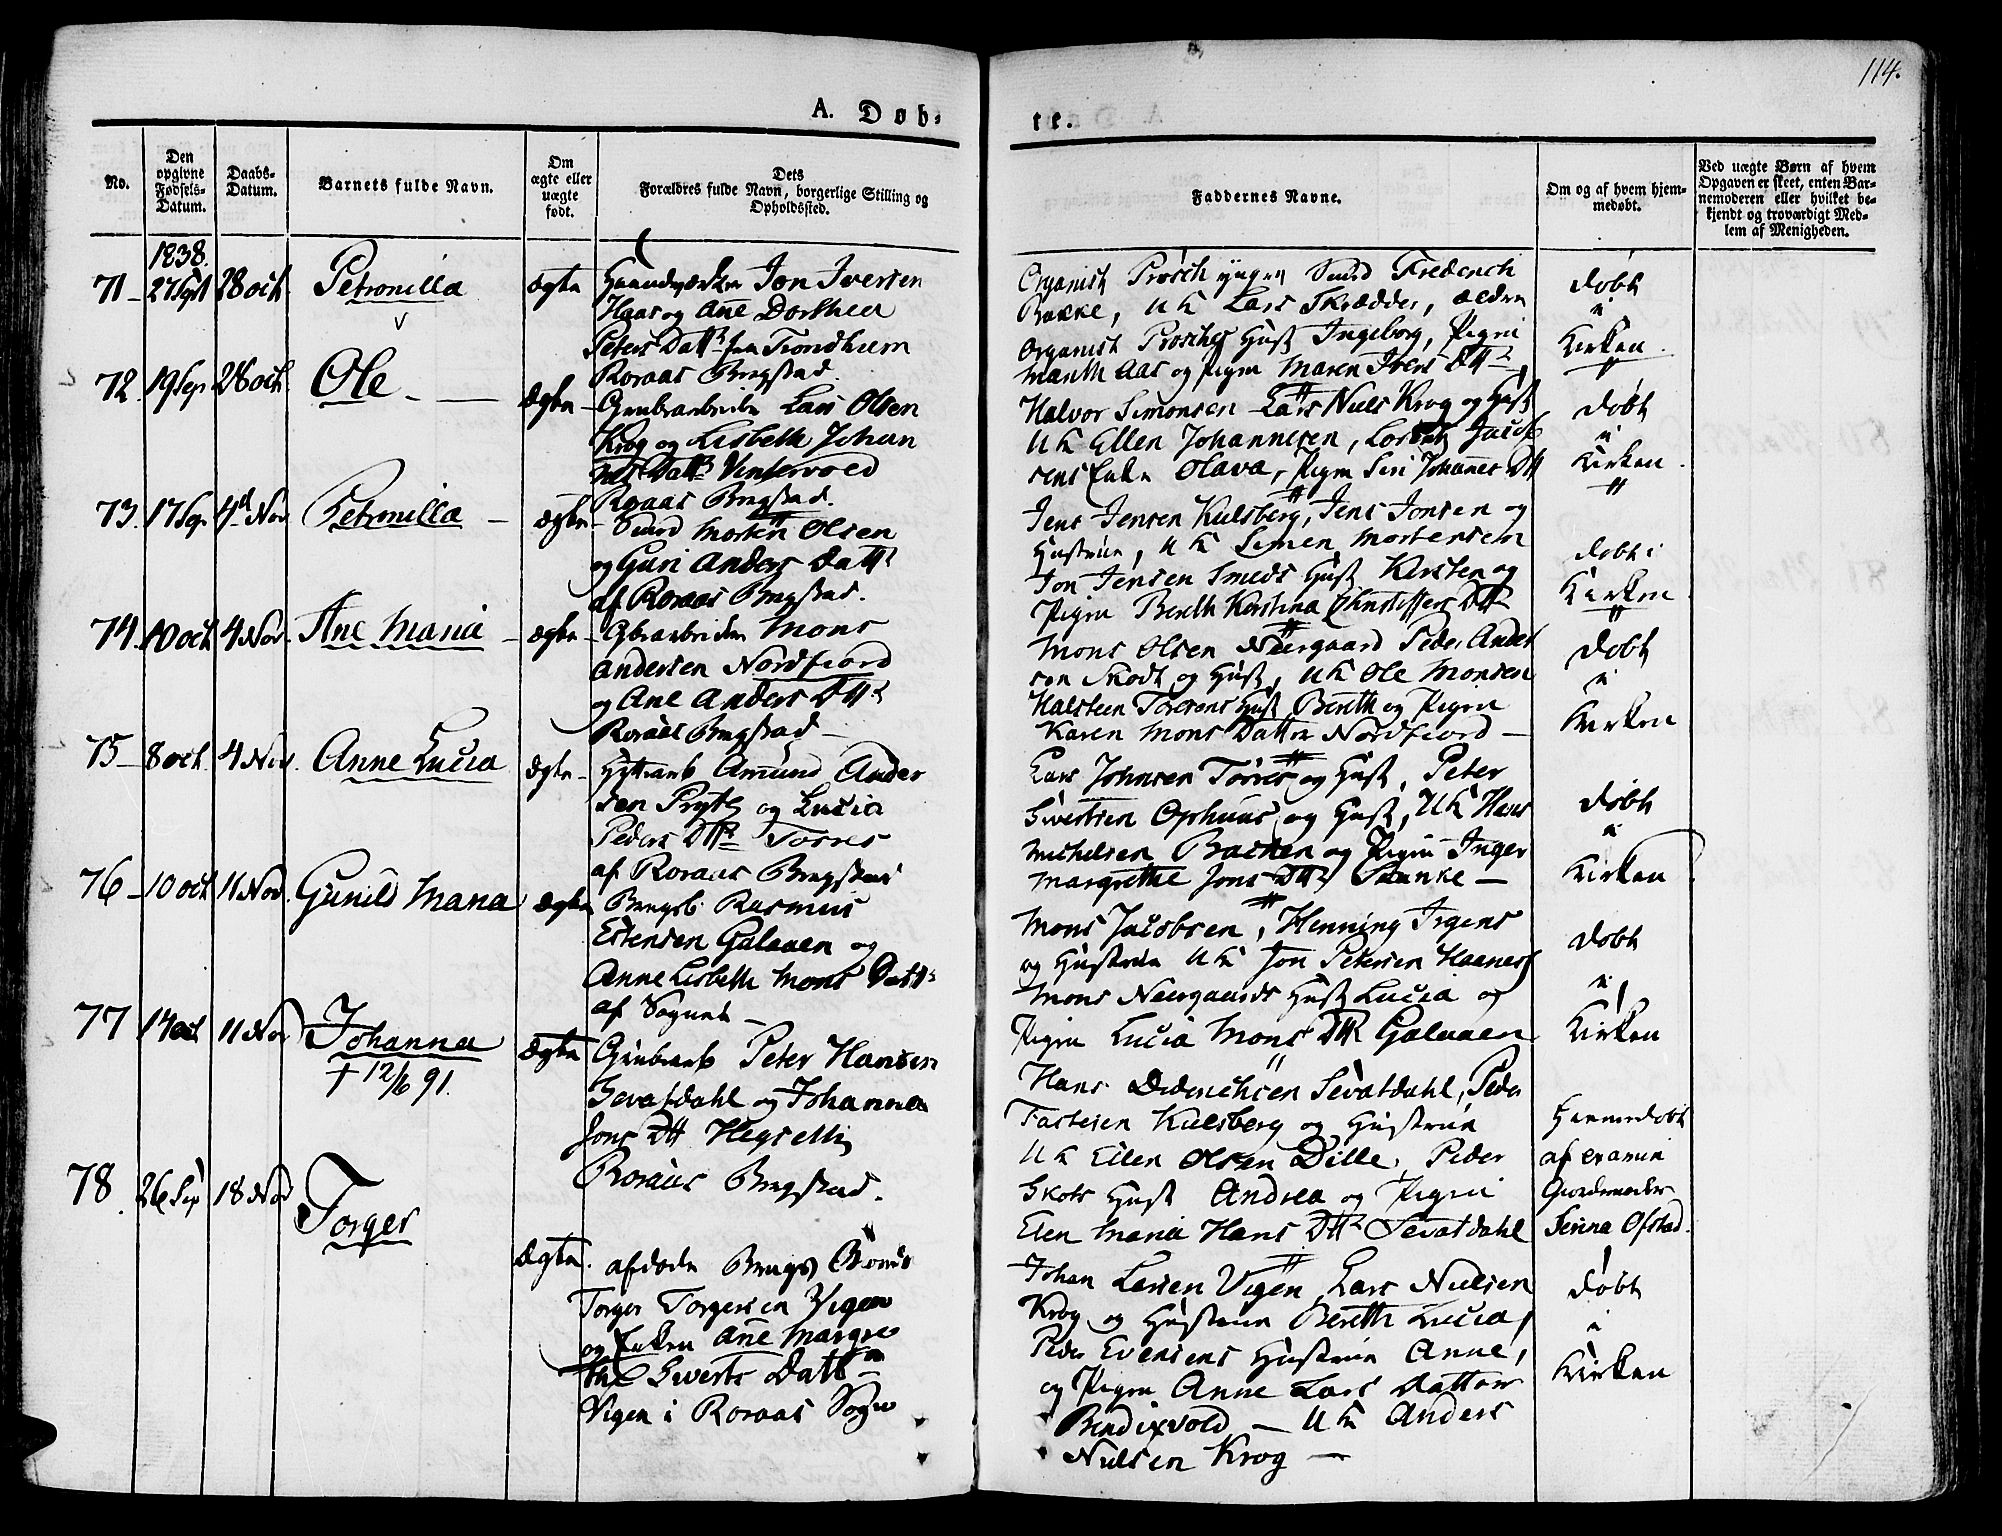 114.
A. Døb-
te.
No.
Den opgivne Fødsels-Datum.
Daabs-Datum.
Barnets fulde Navn.
Om ægte eller uægte født.
Dets Forældres fulde Navn, borgerlige Stilling og Opholdssted.
Faddernes Navne.
Om og af hvem hjem-medøbt.
Ved uægte Børn af hvem Opgaven er skeet, enten Bar-nemoderen eller hvilket be-kjendt og troværdigt Med-lem af Menigheden.
1838.
71 27 Sept 28 oct. Petronilla ægte
Haandværker Jon Iversen
Haas og Ane Dorthea
Peters Datt fra Trondhiem
Roraas Bergstad.
Organist Prosch Smed Frederich
Bakke, UK Lars Skrædder,
Organist Prosches Hust Ingeborg, Pigen
Mareth Aas og Pigen Maren Ivers Dtt
døbt
i
Kirken
72 19 Sep 28 oct. Ole ægte
Grubearbeider Lars Olsen
Krog og Lisbeth Johan
nes Datt Vintervold
Roraas Bergstad.
Halvor Simonsen Lars Niels Krog og Hust
UK Ellen Johannesen, Jacob
sens Enke Olava, Pigen Siri Johannes Dtt
døbt
i
Kirken
73 17 Sep 4d Nov Petronilla ægte
Smed Morten Olsen
og Guri Anders Datt
af Roraas Bergstad.
Jens Jensen Kulsberg, Jens Jonsen og
Hustrue, UK Simen Mortensen
Jon Jensen Smeds Hust Kirsten og
Pigen Bereth Kerstina Christoffers Dtt
døbt i
Kirken
74 10 oct 4 Nov. Ane Maria ægte
Mons
Andersen Nordfiord
og Ane Anders Dtt
Roraas Bergstad
Mons Olsen Neergaard Peder Ander
sen Skott og Hust, UK Ole Monsen
Halsteen Hust Bereth og Pigen
Karen Mons Datter Nordfiord
døbt
i
Kirken
75 8 oct. 4 Nov. Anne Lucia ægte
Hyttearb Amund Ander
sen Prytz og Lucia
Peders Dtt Torres
af Roraas Bergstad
Lars Johnsen Torres og Hust, Peter
Sivertsen Ophuus og Hust, UK Hans
Michelsen Backen og Pigen Inger
Margrethe Jons Dtt
døbt
i
Kirken
76 10 oct 11 Nov. Gunild Maria ægte
Bergsb. Rasmus
Estensen Galaaen og
Anne Lisbeth Mons Datt
af Sognet
Mons Jacobsen, Henning Irgens
og Hustrue UK Jon Petersen Haanes
Mons Neergaards Hust Lucia og
Pigen Lucia Mons Dtt Galaaen
døbt
i
Kirken
77 14 oct 11 Nov Johanna ægte
† 12/6 91.
Grubearb Peter Hansen
Sevatdahl og Johanna
Jons Dtt
Roraas Bergstad.
Hans Diderichsen Sevatdahl, Peder
Kulsberg og Hustrue
UK Ellen Olsen Dille, Peder
Skots Hust Andrea og Pigen
Elen Maria Hans Dtt Sevatdahl
Hiemmedøbt
af examin
Giordemoder
Ofstad.
78 26 Sep 18 Nov Torger ægte.
afdøde Bergs Bonde
Torger Torgersen Vigen
og Enken Ane Margre
the Siverts Datt
Vigen i Roraas Sogn
Johan Larsen Vigen, Lars Nielsen
Krog og Hustrue Bereth Lucia,
Peder Evensens Hustrue Anne,
og Pigen Anne Lars Datter
Bendixvold — UK Anders
Nielsen Krog —
døbt
i
Kirken